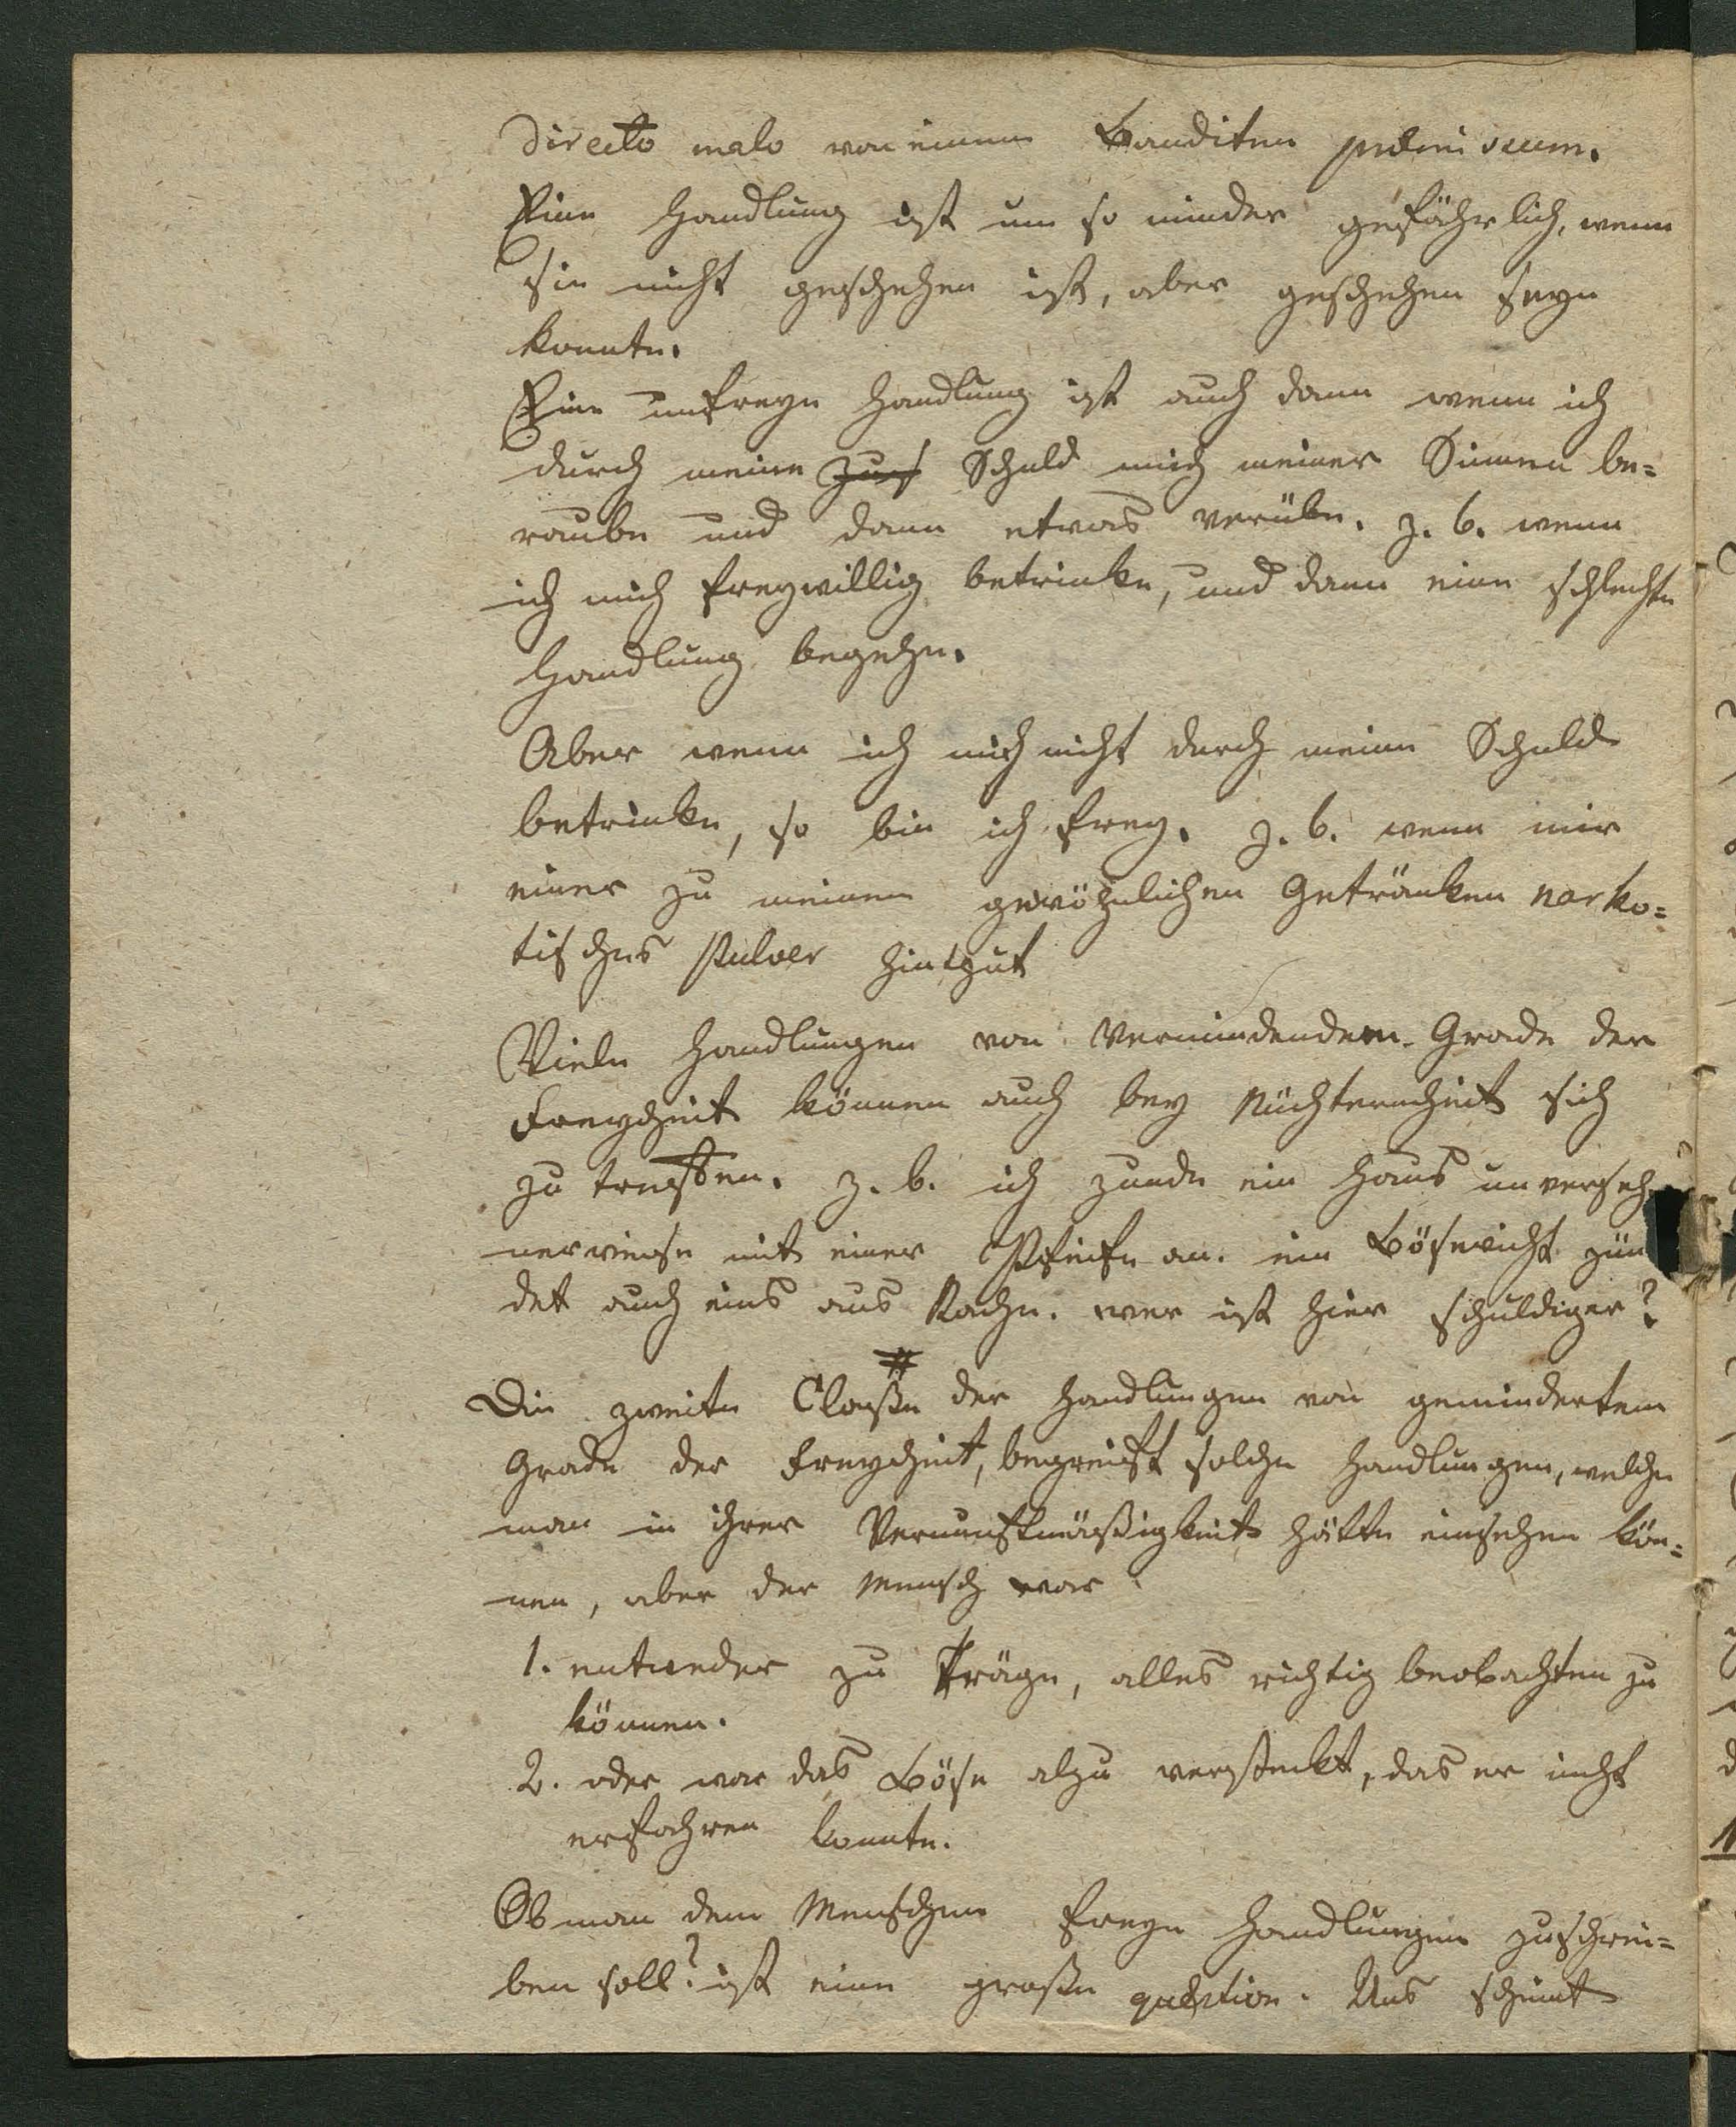 directo malo von einem Banditen
Eine Handlung ist um so minder gefährlich, wenn
sie nicht geschehen ist, aber geschehen seyn
konnte.
Eine unfreye Handlung ist auch dann wenn ich
durch meine Schuld mich meiner Sinnen be=
raube und dann etwas verübe. z. b. wenn
ich mich freywillig betrinke, und dann eine schlechte
Handlung begehe.
Aber wenn ich mich nicht durch meine Schuld
betrinke, so bin ich frey. z. b. wenn mir
einer zu meinen gewöhnlichen Getränken narko=
tisches Pulver hinthut
Viele Handlungen von Grade der
Freyheit können auch bey Nüchternheit sich
zu treffen. z. b. ich zunde ein Haus unverseh
nerweise mit einer Pfeife an. ein Bösewicht zün
det auch eins aus Rache. wer ist hier schuldiger?
Die zweite Claße der Handlungen von gemindertem
Grade der Freyheit, begreift solche Handlungen, welche
man in ihrer Vernunftmäßigkeit hätte einsehen kön=
nen, aber der Mensch war
1. entweder zu träge, alles richtig beobachten zu
können.
2. oder war das Böse alzu versteckt, das er nicht
erfahren konnte.
Ob man dem Menschen freye Handlungen zuschrei=
ben soll? ist eine große quæstion. Uns scheint